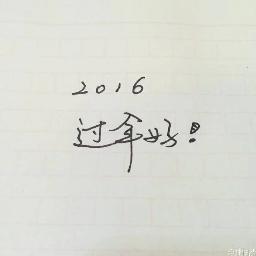 2016
过年好!